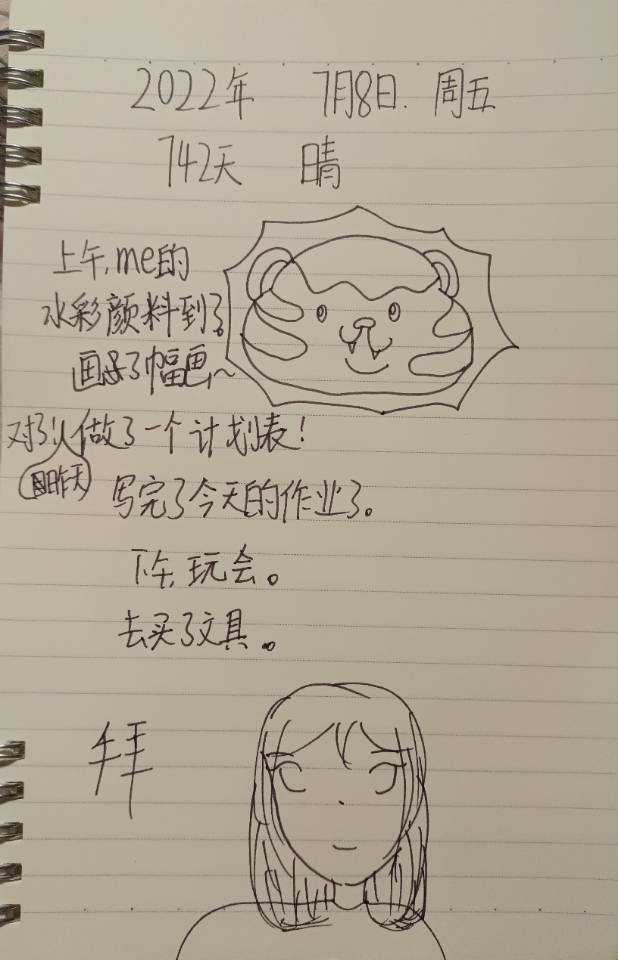 2022年 7月8日. 周五
742天 晴
上午, me的
水彩颜料到了。
画了幅画~
对了! 做了一个计划表!
昨天
写完了今天的作业了。
下午, 玩会。
去买了文具。
拜